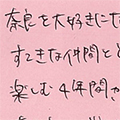 奈良を大好きにな
すてきな仲間とと
楽しむ4年間が